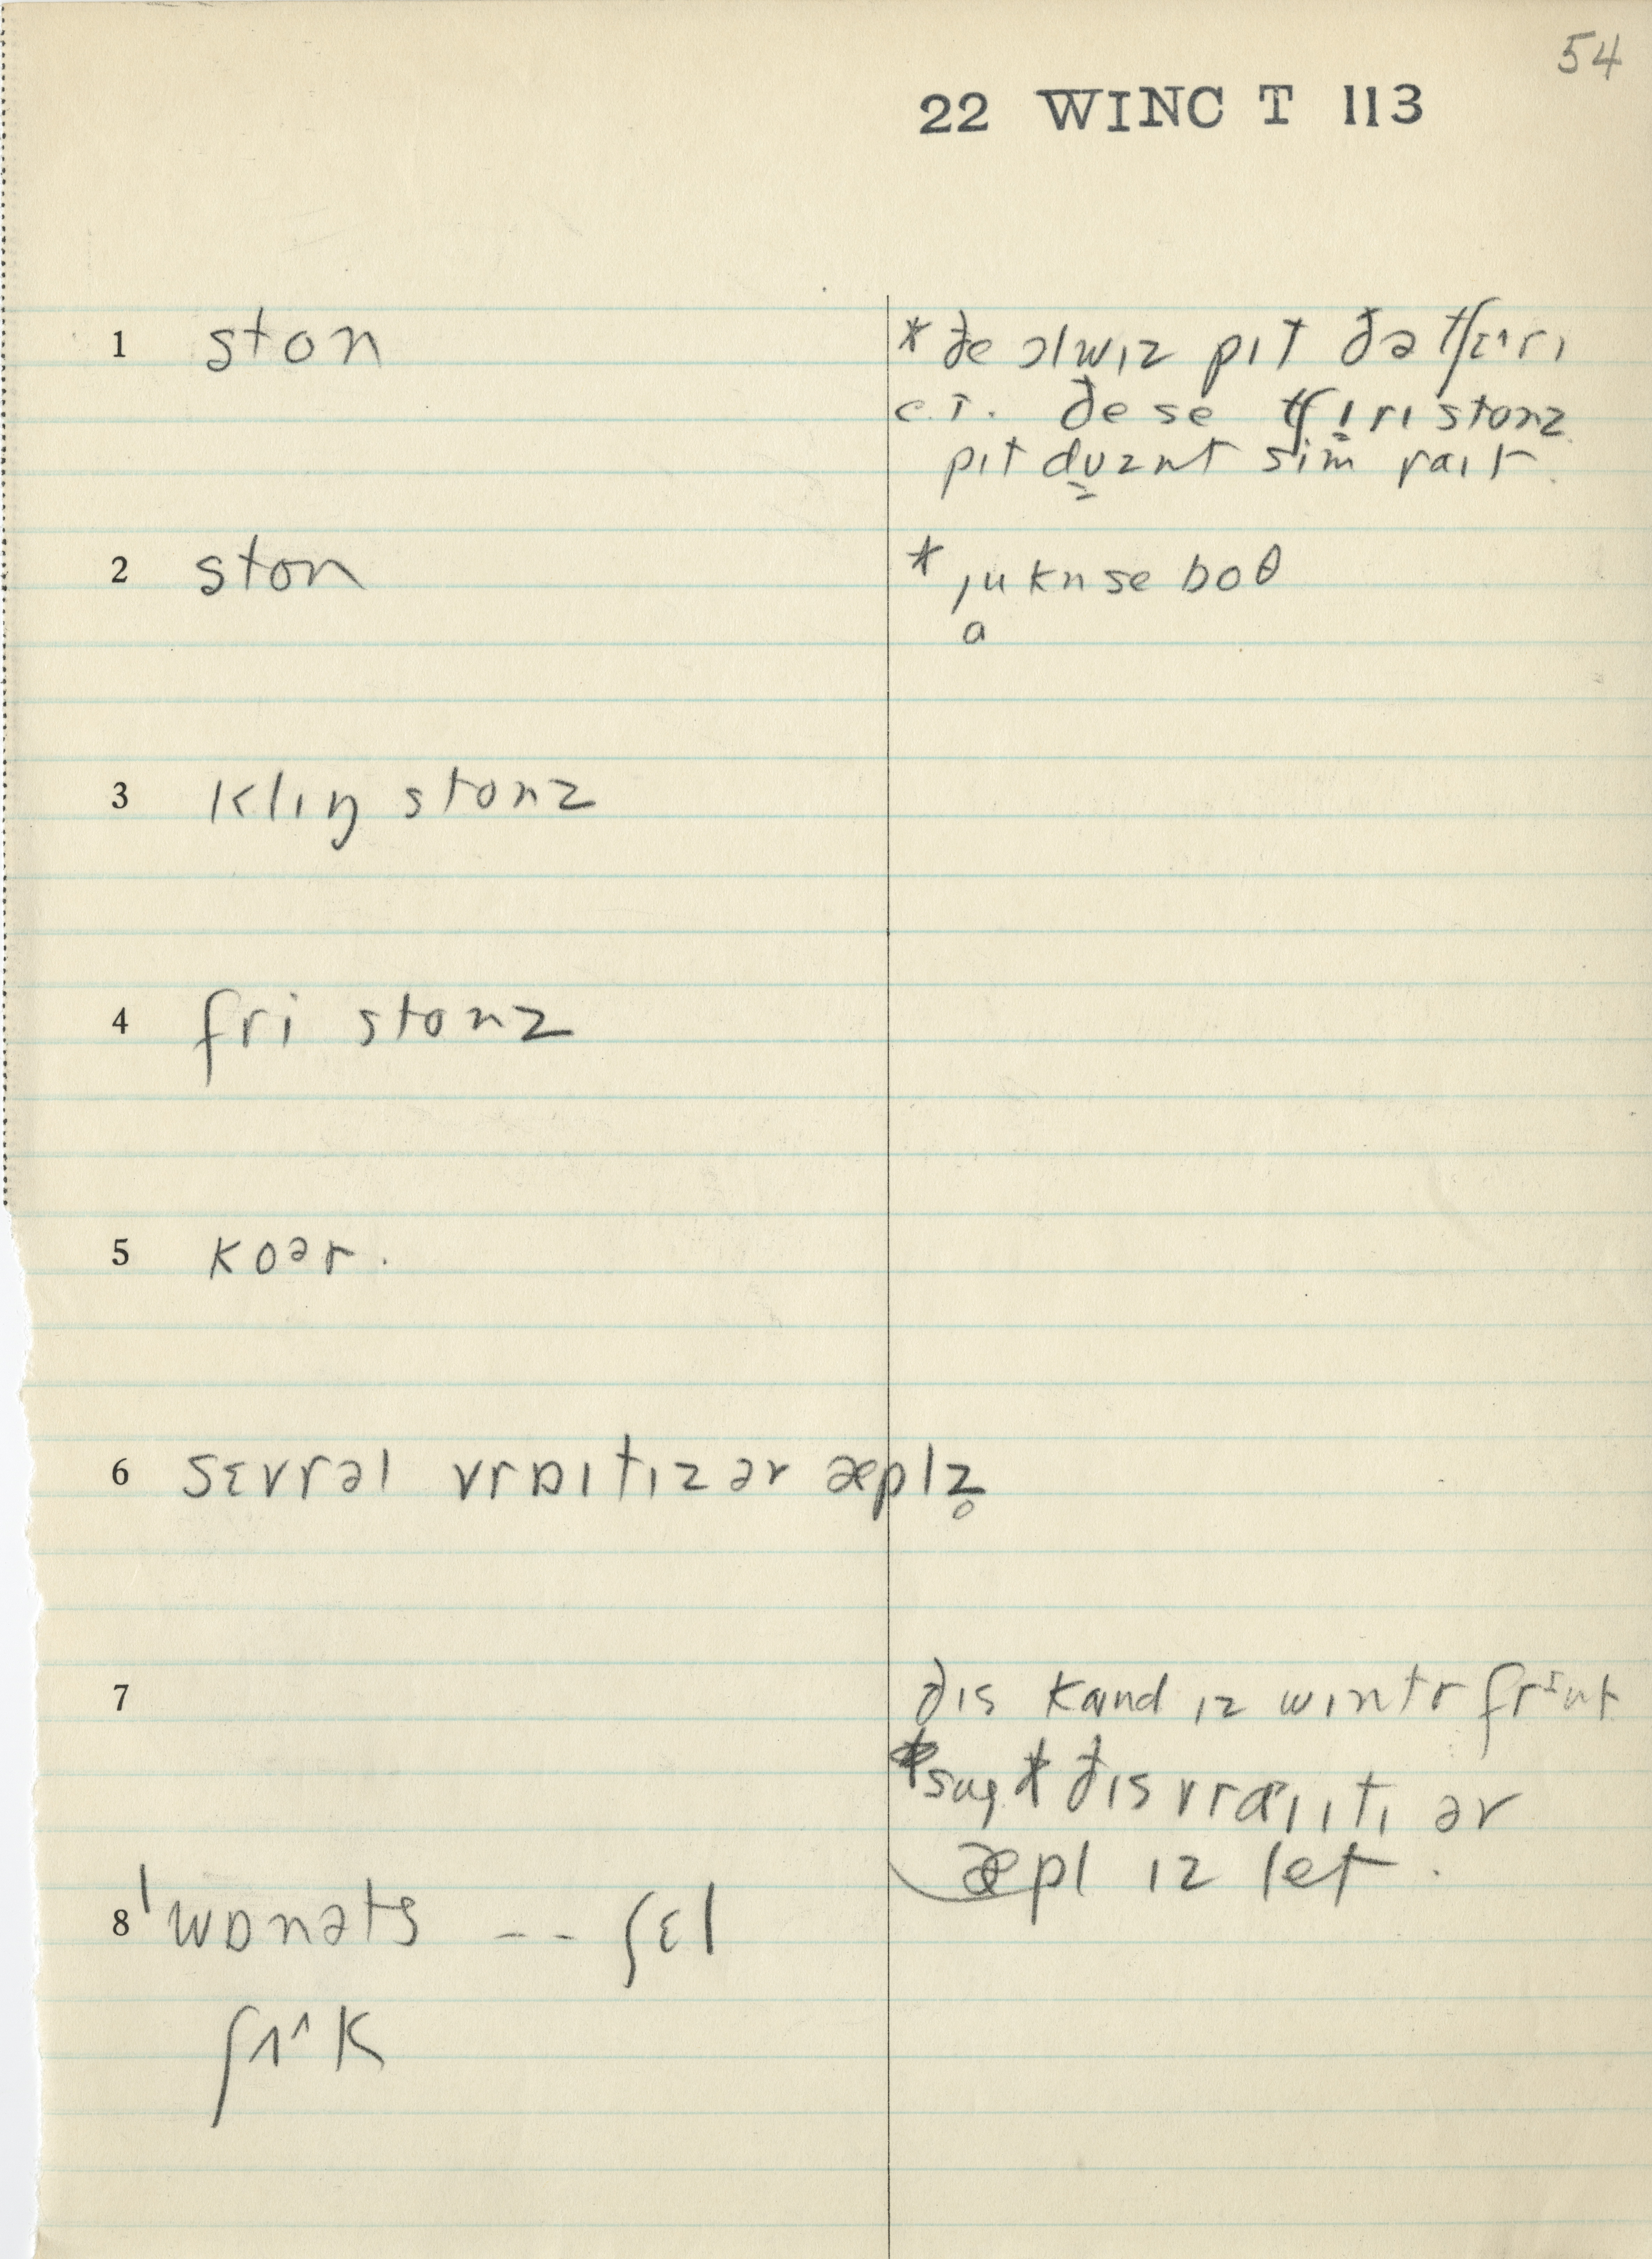 54
22 WINC T 113
1 ston
* ðe ɔlwɪz pɪt ðə tʃɛɪ^rɪ
c.r. ðe se tʃɪ̱rɪ stonz
pɪt dʊznt sim raɪt.
2 ston
* ju kn se boθ
a
3 klɪŋ stonz
4 fri stonz
5 koər.
6 sɛvrəl vrɒɪtɪz əv æplz̥
7 ðɪs kaɪnd ɪz wɪntr frɪut
ðɪs vraɪɪtɪ əv
æpl ɪz let.
8 ˈwɒnəts -- ʃɛl
ʃʌ^k